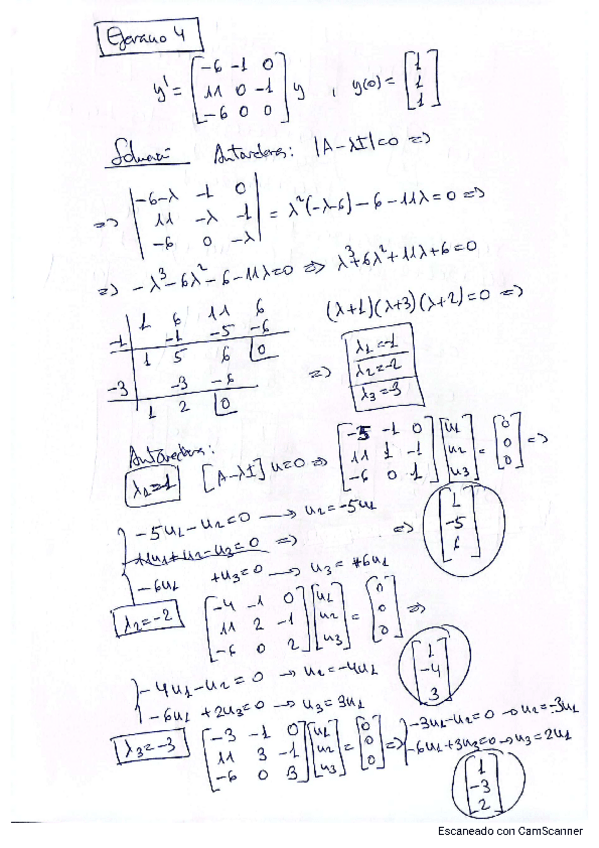 Ejercicio 4
y' = [-6 -1 0; 11 0 -1; -6 0 0] y , y(0) = [1; 1; 1]
Solución Autovalores: |A-λI|=0 =>
=> |-6-λ -1 0; 11 -λ -1; -6 0 -λ| = λ²(-λ-6)-6-11λ=0 =>
=> -λ³-6λ²-6-11λ=0 => λ³+6λ²+11λ+6=0
1 6 11 6
-1 -1 -5 -6
1 5 6 0
-3 -3 -6
1 2 0
(λ+1)(λ+3)(λ+2)=0 =>
=> λ1=-1
λ2=-2
λ3=-3
Autovectores:
λ1=-1 [A-λI]u=0 => [-5 -1 0; 11 1 -1; -6 0 1] [u1; u2; u3] = [0; 0; 0] =>
-5u1-u2=0 → u2=-5u1
11u1+u2-u3=0 => => [1; -5; 6]
-6u1 +u3=0 → u3=+6u1
λ2=-2 [-4 -1 0; 11 2 -1; -6 0 2] [u1; u2; u3] = [0; 0; 0] =>
-4u1-u2=0 → u2=-4u1 [1; -4; 3]
-6u1+2u3=0 → u3=3u1
λ3=-3 [-3 -1 0; 11 3 -1; -6 0 3] [u1; u2; u3] = [0; 0; 0] => -3u1-u2=0 → u2=-3u1
-6u1+3u3=0 → u3=2u1
[1; -3; 2]
Escaneado con CamScanner